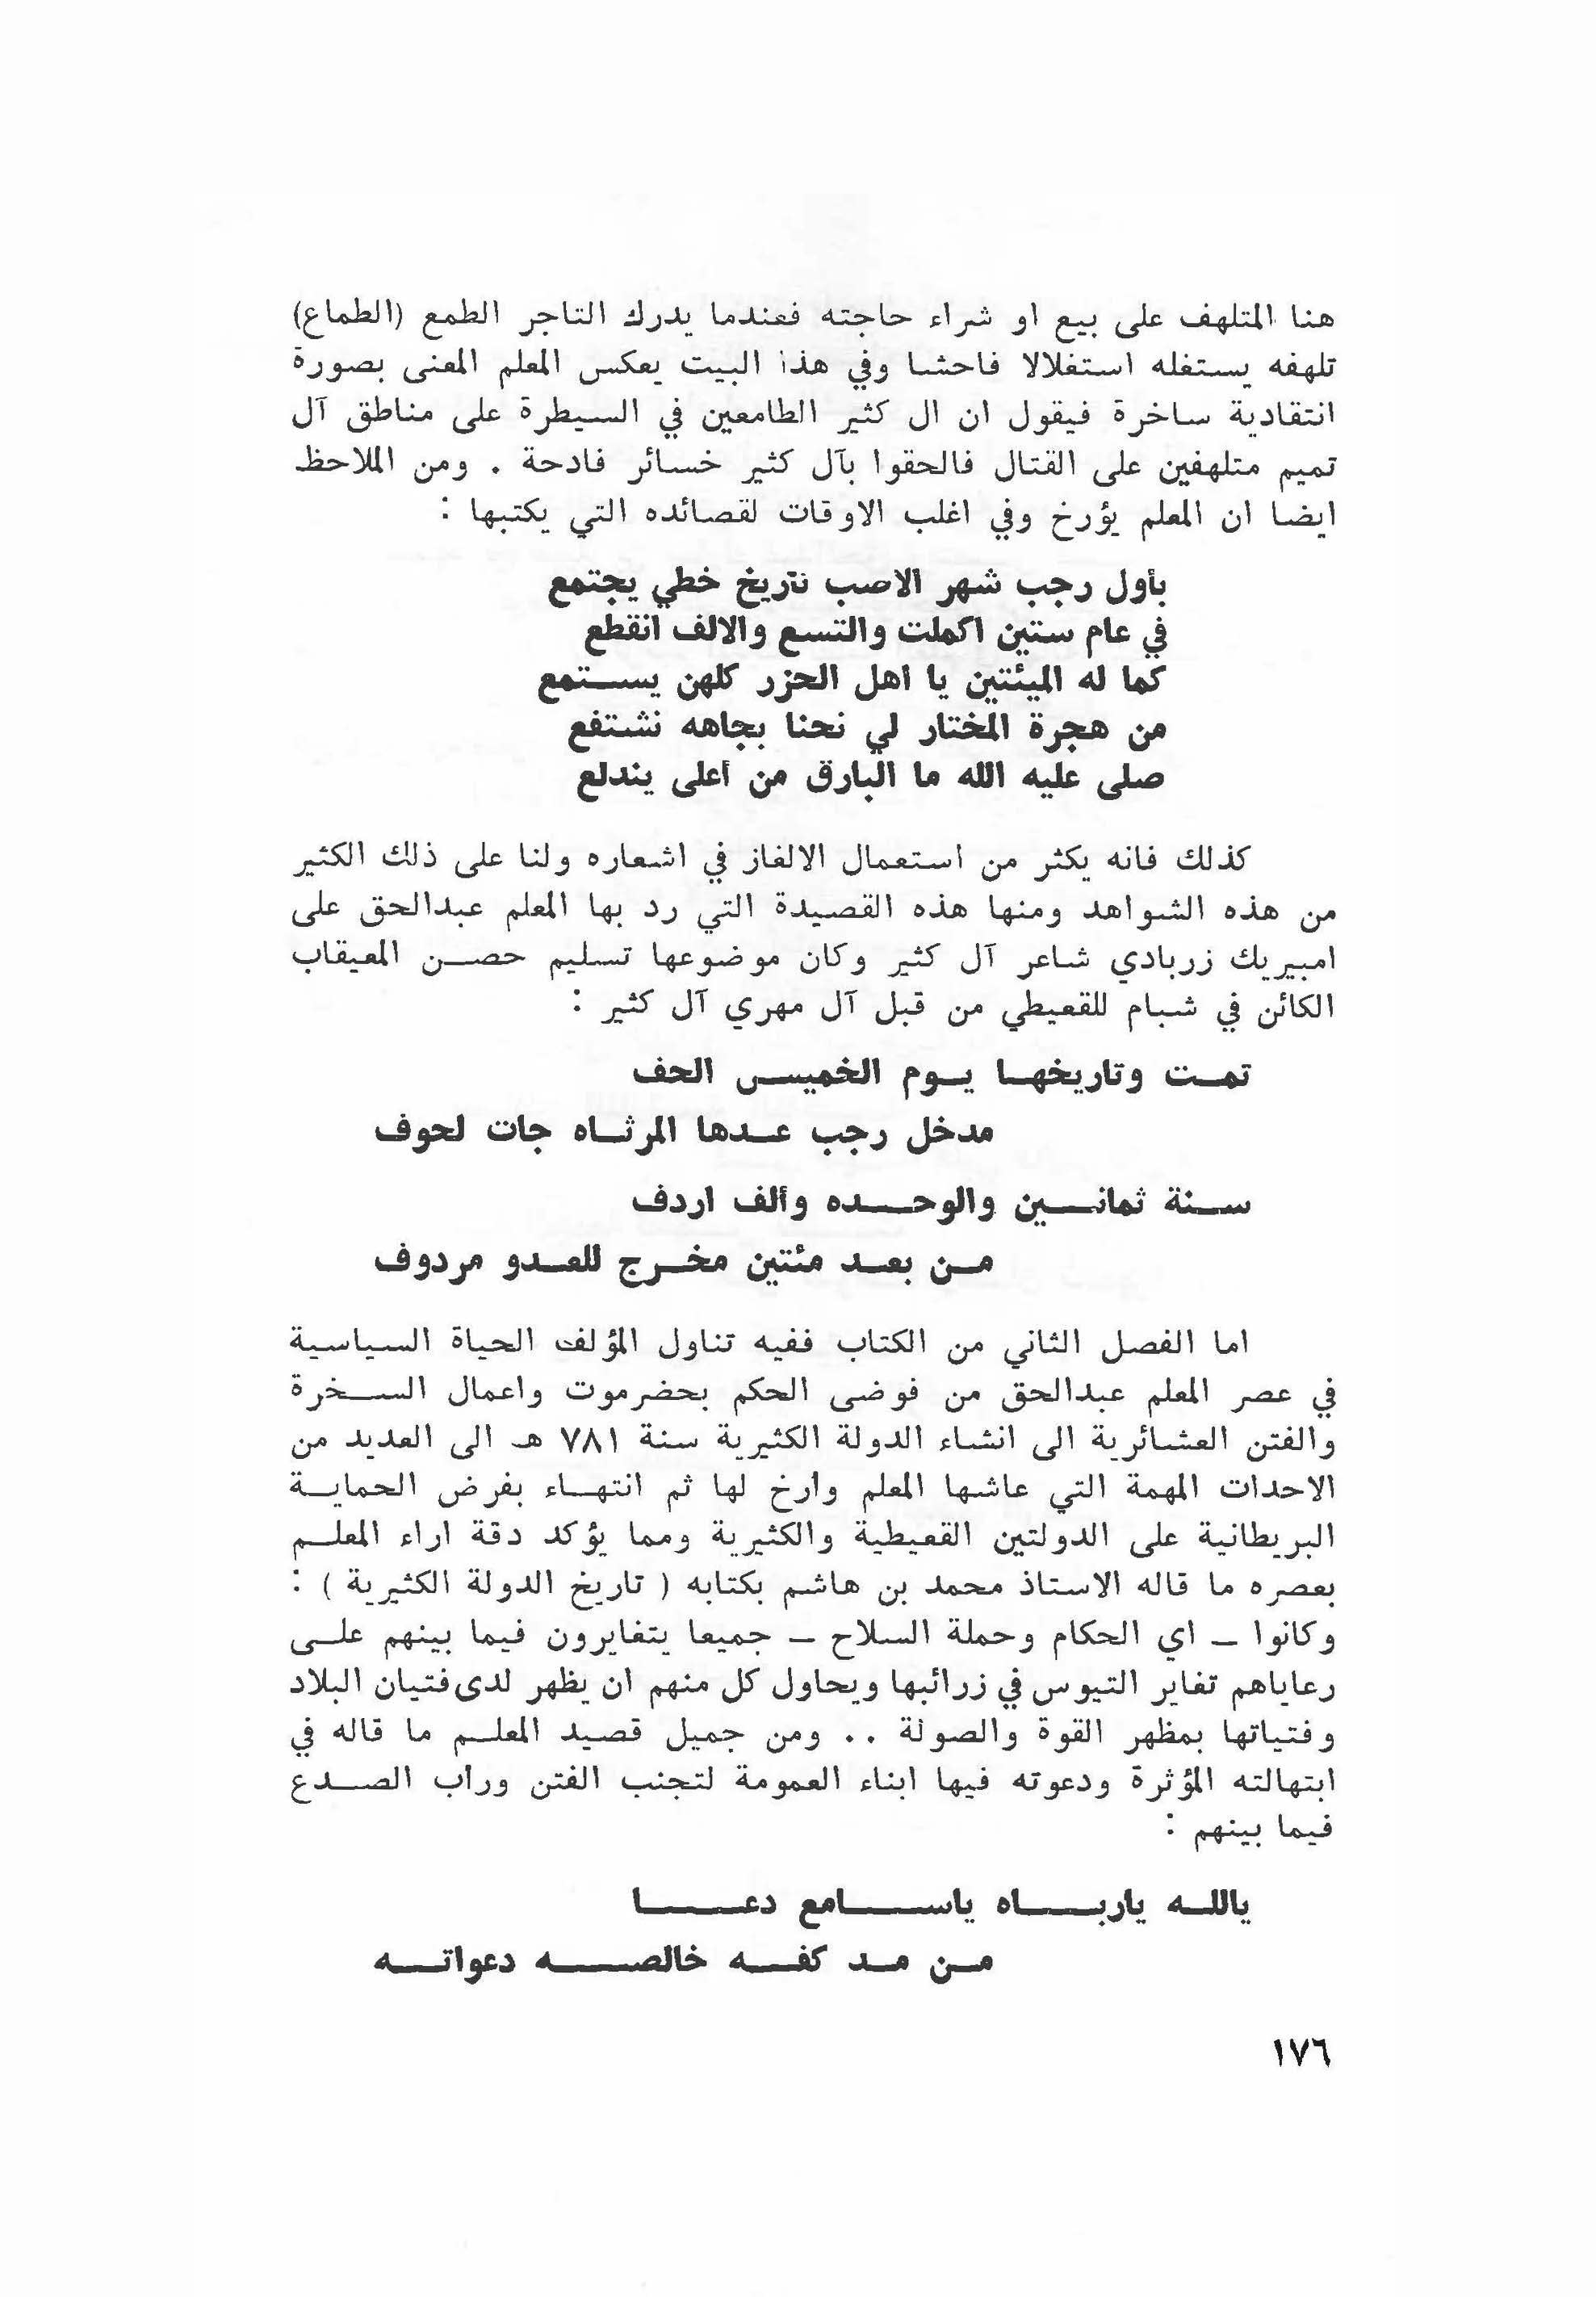 هنا المتلهف على بيع او شراء حاجته فعندما يدرك التاجر الطمع (الطماع)
تلهفه يستغله استغلالا فاحشا وفي هذا البيت يعكس المعلم المعنى بصورة
انتقادية ساخرة فيقول ان ال كثير الطامعين في السيطرة على مناطق آل
تميم متلهفين على القتال فالحقوا بآل كثير خسائر فادحة . ومن الملاحظ
ايضا ان المعلم يؤرخ وفي اغلب الاوقات لقصائده التي يكتبها :
بأول رجب شهر الاصب تأريخ خطي يجتمع
في عام ستين اكملت والتسع والالف انقطع
كما له الميئتين يا اهل الحزر كلهن يستمع
من هجرة المختار لي نحنا بجاهه نشتفع
صلى عليه الله ما البارق من أعلى يندلع
كذلك فانه يكثر من استعمال الالغاز في اشعاره ولنا على ذلك الكثير
من هذه الشواهد ومنها هذه القصيدة التي رد بها المعلم عبدالحق على
امبيريك زربادي شاعر آل كثير وكان موضوعها تسليم حصن المعيقاب
الكائن في شبام للقعيطي من قبل آل مهري آل كثير :
تمت وتاريخها يوم الخميس الحف
مدخل رجب عدها المرثاه جات لحوف
سنة ثمانين والوحده وألف اردف
من بعد مئتين مخرج للعدو مردوف
اما الفصل الثاني من الكتاب ففيه تناول المؤلف الحياة السياسية
في عصر المعلم عبدالحق من فوضى الحكم بحضرموت واعمال السخرة
والفتن العشائرية الى انشاء الدولة الكثيرية سنة ٧٨١ هـ الى العديد من
الاحداث المهمة التي عاشها المعلم وأرخ لها ثم انتهاء بفرض الحماية
البريطانية على الدولتين القعيطية والكثيرية ومما يؤكد دقة اراء المعلم
بعصره ما قاله الاستاذ محمد بن هاشم بكتابه ( تاريخ الدولة الكثيرية ) :
وكانوا – اي الحكام وحملة السلاح – جميعا يتغايرون فيما بينهم على
رعاياهم تغاير التيوس في زرائبها ويحاول كل منهم ان يظهر لدى فتيان البلاد
وفتياتها بمظهر القوة والصولة .. ومن جميل قصيد المعلم ما قاله في
ابتهالته المؤثرة ودعوته فيها ابناء العمومة لتجنب الفتن ورأب الصدع
فيما بينهم :
يالله يارباه ياسامع دعا
من مد كفه خالصه دعواته
١٧٦